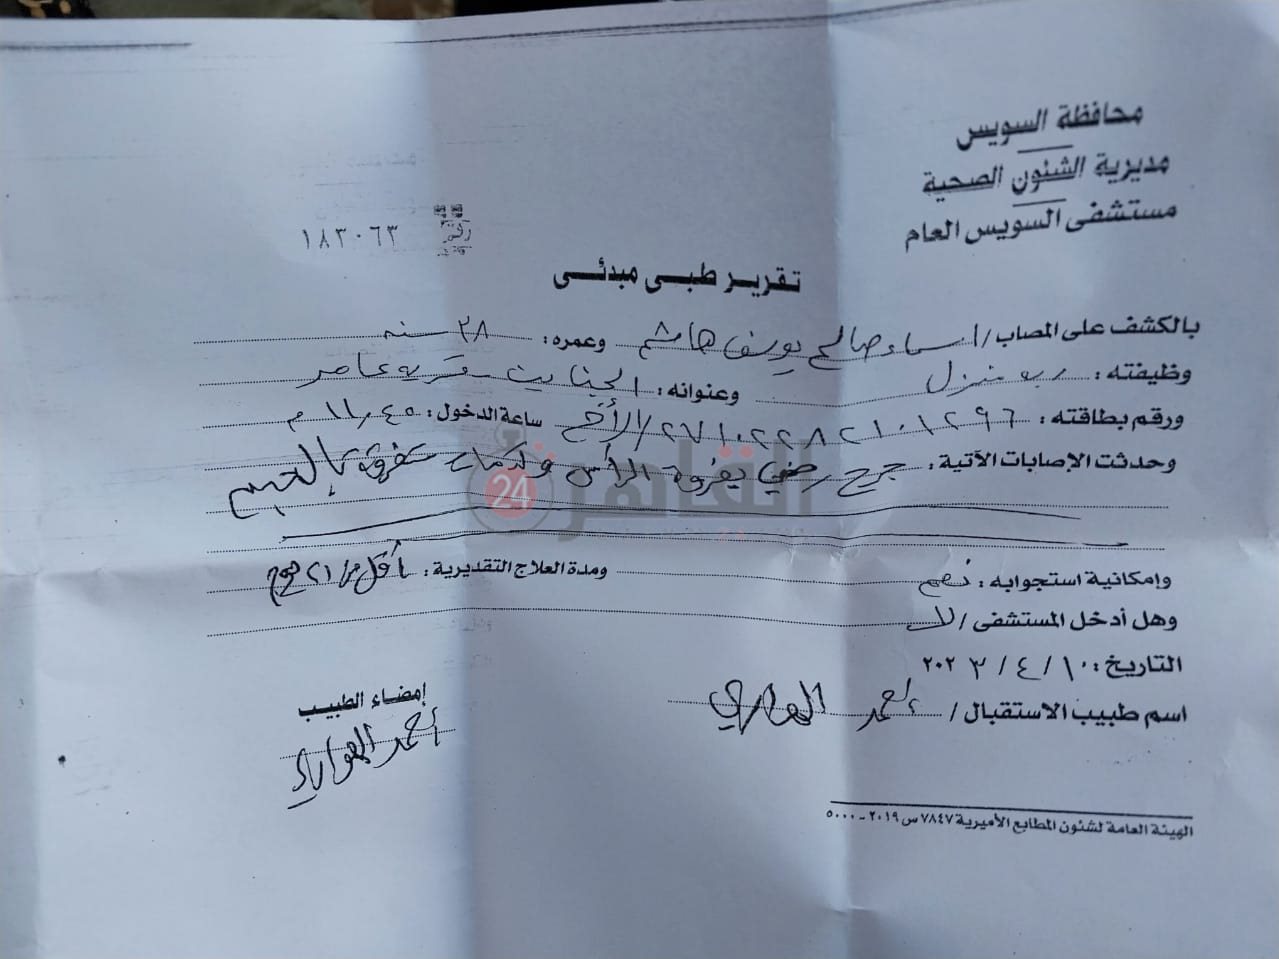 محافظة السويس
مديرية الشئون الصحية
مستشفى السويس العام
رقم ١٨٣٠٦٣
تقرير طبى مبدئى
بالكشف على المصاب / اسماء صالح يوسف هاشم وعمره : ٢٨ سنه
وظيفته : ربه منزل وعنوانه : الجناين - قريه عامر
ورقم بطاقته : / الأخ ساعة الدخول : ١١,٤٥ م
وحدثت الإصابات الآتية : جرح رضي بفروة الرأس وكدمات متفرقة بالجسم
القاهرة 24
وإمكانية استجوابه : نعم ومدة العلاج التقديرية : أقل من ٢١ يوم
وهل أدخل المستشفى / لا
التاريخ : ١٠ / ٤ / ٢٠٢٣
اسم طبيب الاستقبال / أحمد الهواري
إمضاء الطبيب
أحمد الهواري
الهيئة العامة لشئون المطابع الأميرية ٧٨٤٧ س ٢٠١٩ - ٥٠٠٠